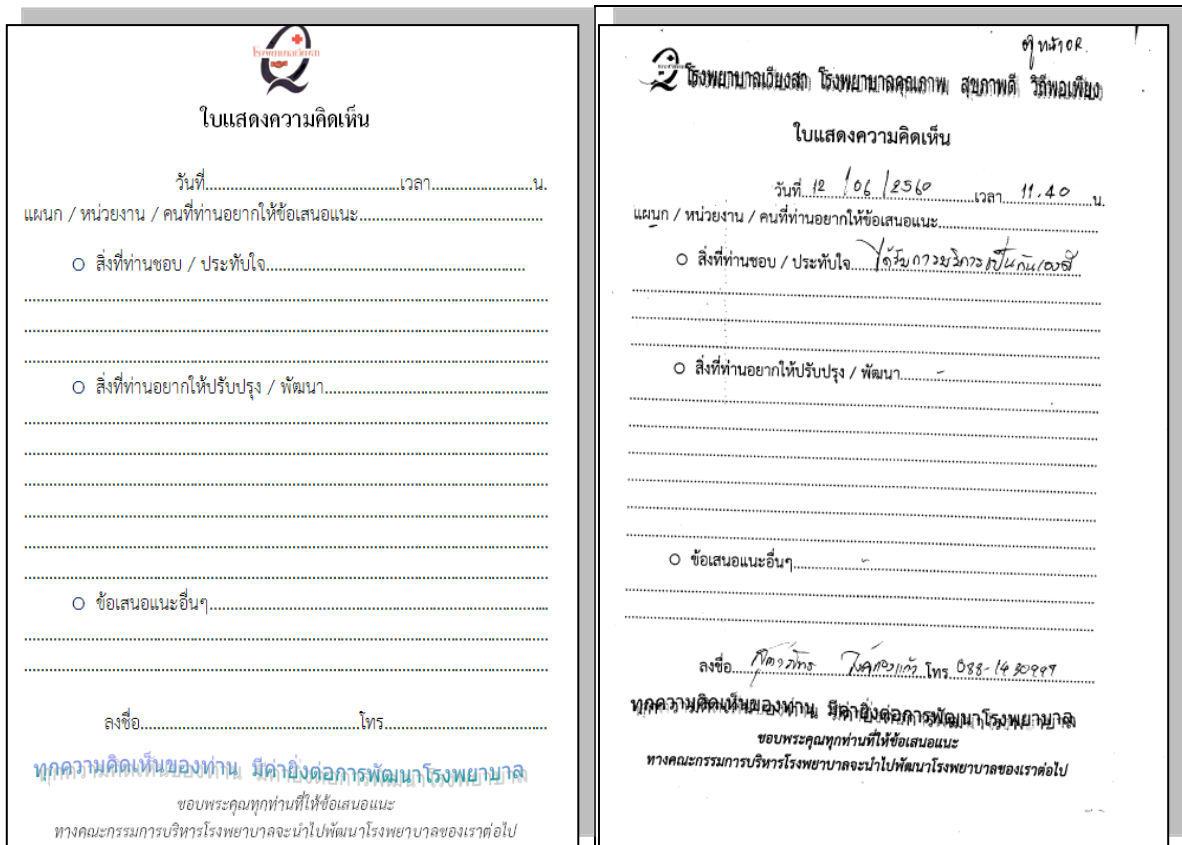 ใบแสดงความคิดเห็น
วันที่..................................................เวลา..........................น.
แผนก / หน่วยงาน / คนที่ท่านอยากให้ข้อเสนอแนะ...............................................
สิ่งที่ท่านชอบ / ประทับใจ..................................................................
สิ่งที่ท่านอยากให้ปรับปรุง / พัฒนา.........................................................
ข้อเสนอแนะอื่นๆ.......................................................................................
ลงชื่อ........................................................โทร..........................................
ทุกความคิดเห็นของท่าน มีค่ายิ่งต่อการพัฒนาโรงพยาบาล
ขอบพระคุณทุกท่านที่ให้ข้อเสนอแนะ
ทางคณะกรรมการบริหารโรงพยาบาลจะนำไปพัฒนาโรงพยาบาลของเราต่อไป
ตู้ หน้า OR.
โรงพยาบาลเวียงสา โรงพยาบาลคุณภาพ สุขภาพดี วิถีพอเพียง
ใบแสดงความคิดเห็น
วันที่ 12 / 06 / 2560 เวลา 11.40 น.
แผนก / หน่วยงาน / คนที่ท่านอยากให้ข้อเสนอแนะ.........................................
สิ่งที่ท่านชอบ / ประทับใจ ได้รับการบริการเป็นกันเองดี
สิ่งที่ท่านอยากให้ปรับปรุง / พัฒนา -
ข้อเสนอแนะอื่นๆ -
ลงชื่อ โทร.
ทุกความคิดเห็นของท่าน มีค่ายิ่งต่อการพัฒนาโรงพยาบาล
ขอบพระคุณทุกท่านที่ให้ข้อเสนอแนะ
ทางคณะกรรมการบริหารโรงพยาบาลจะนำไปพัฒนาโรงพยาบาลของเราต่อไป